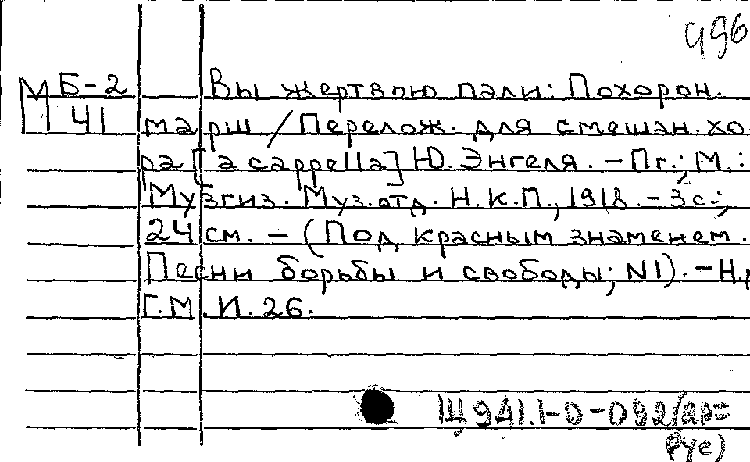 496
М Б-2
41
Вы жертвою пали: Похорон.
марш / Перелож. для смешан. хо
ра [a cappella] Ю. Энгеля. – Пг.; М.:
Музгиз. Муз. отд. Н.К.П., 1918. – 3 с.;
24 см. – (Под красным знаменем.
Песни борьбы и свободы; N1). – Н.
Г.М.И. 26.
Щ941.1-0-092/ал=
Рус)